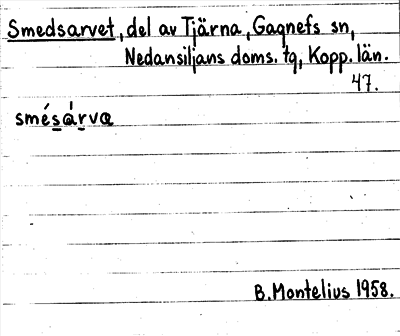 Smedsarvet, del av Tjärna, Gagnefs sn,
Nedansiljans doms. tg, Kopp. län.
47.
smésárvæ
B. Montelius 1958.